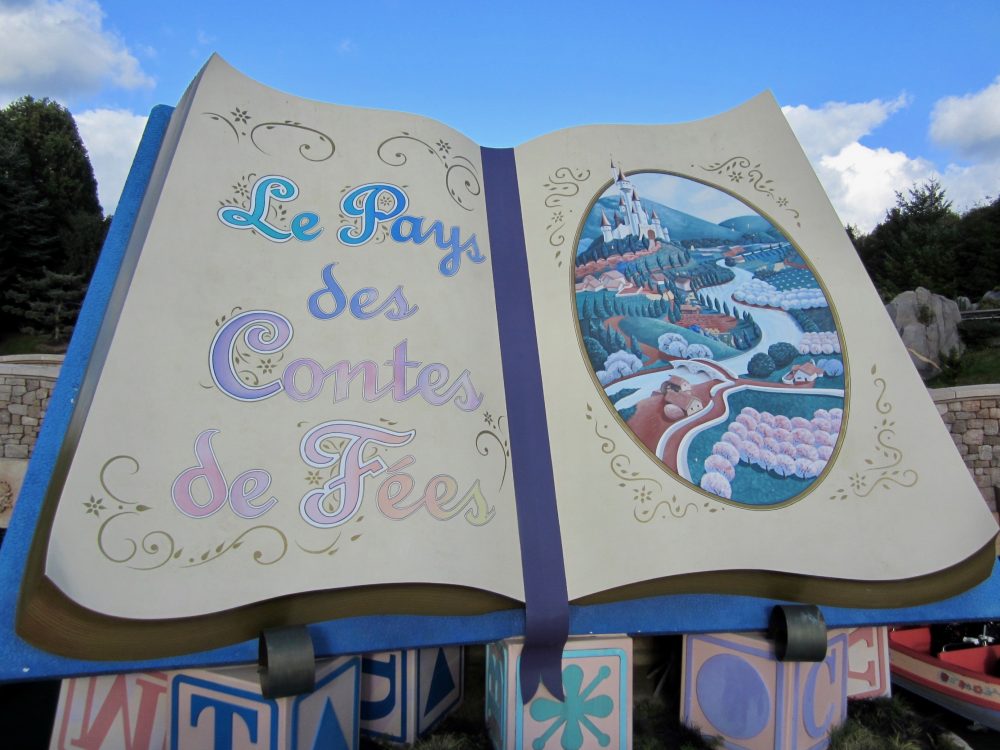 Le Pays
des
Contes
de Fées
M T S C